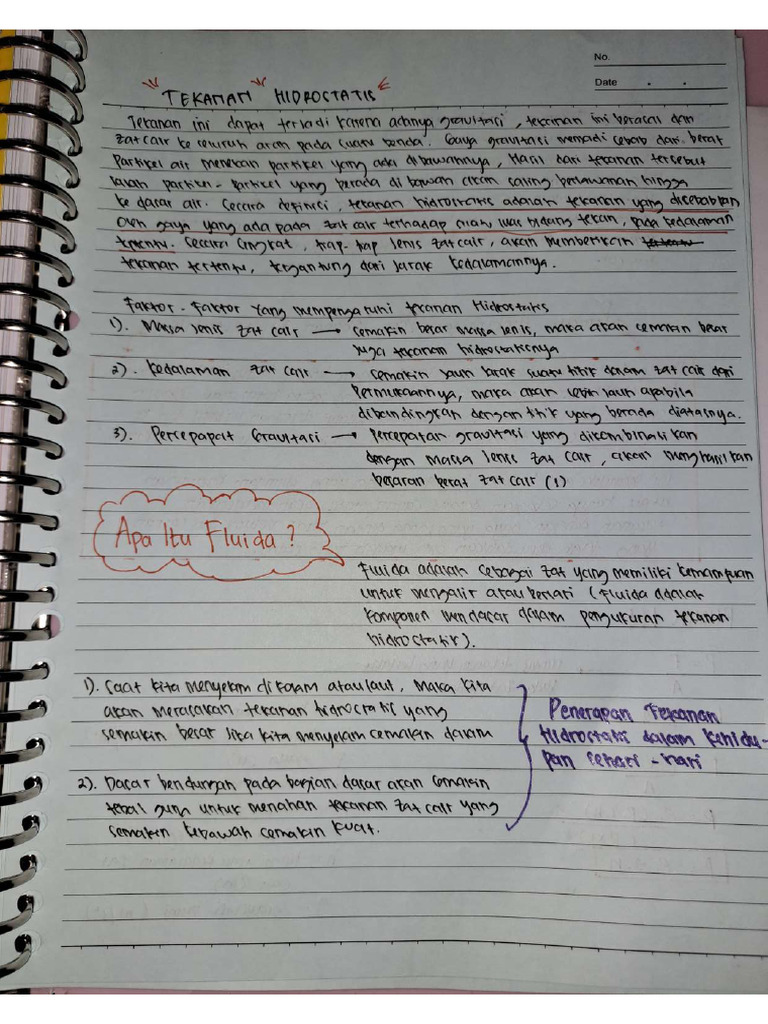 No.
Date
TEKANAN HIDROSTATIS
Tekanan ini dapat terjadi karena adanya gravitasi, tekanan ini berasal dari
zat cair ke seluruh arah pada suatu benda. Gaya gravitasi menjadi sebab dari berat
partikel air menekan partikel yang ada dibawahnya, Hasil dari tekanan tersebut
ialah partikel-partikel yang berada di bawah akan saling berlawanan hingga
ke dasar air. Secara definisi, tekanan hidrostatis adalah tekanan yang disebabkan
oleh gaya yang ada pada zat cair terhadap luas bidang tekan, pada kedalaman
tertentu. Secara singkat, tiap-tiap jenis zat cair, akan memberikan
tekanan tertentu, tergantung dari jarak kedalamannya.
Faktor-Faktor yang mempengaruhi tekanan Hidrostatis
1). Massa Jenis zat cair → semakin besar massa jenis, maka akan semakin besar
juga tekanan hidrostatisnya
2). Kedalaman zat cair → semakin jauh jarak suatu titik dalam zat cair dari
permukaannya, maka akan lebih jauh apabila
dibandingkan dengan titik yang berada diatasnya.
3). Percepapat Gravitasi → Percepatan gravitasi yang dikombinasikan
dengan massa jenis zat cair, akan menghasilkan
besaran berat zat cair (1)
Apa Itu Fluida?
Fluida adalah sebagai zat yang memiliki kemampuan
untuk mengalir atau berlari (Fluida adalah
komponen mendasar dalam pengukuran tekanan
hidrostatik).
1). Saat kita menyelam di kolam atau laut, maka kita
akan merasakan tekanan hidrostatis yang
semakin besar jika kita menyelam semakin dalam
2). Dasar bendungan pada bagian dasar akan semakin
tebal guna untuk menahan tekanan zat cair yang
semakin kebawah semakin kuat.
Penerapan Tekanan
Hidrostatis dalam Kehidu-
pan sehari-hari